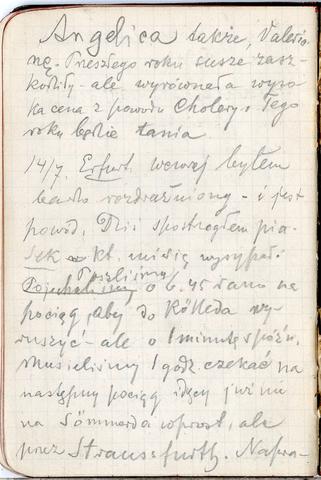 Angelica także, Valeria-
nę. Przeszłego roku susze zasz-
kodziły - ale wyrównała wyso-
ka cena z powodu Cholery. Tego
roku będzie tania
14/7. Erfurt. wczoraj byłem
bardzo rozdrażniony - i jest
powód. Dziś spostrzegłem pia-
sek kt. mówię wysypał.
Poszliśmy
Pojechaliśmy o 6.45 rano na
pociąg aby do Kölleda wy-
ruszyć - ale o 1 minutę spóźn.
Musieliśmy 1 godz. czekać na
następny pociąg idący już nie
na Sömmerda wprost, ale
przez Straussfurth. Napra-